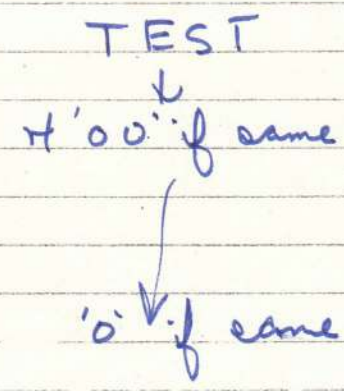 TEST
H'00' if same
'0' if same